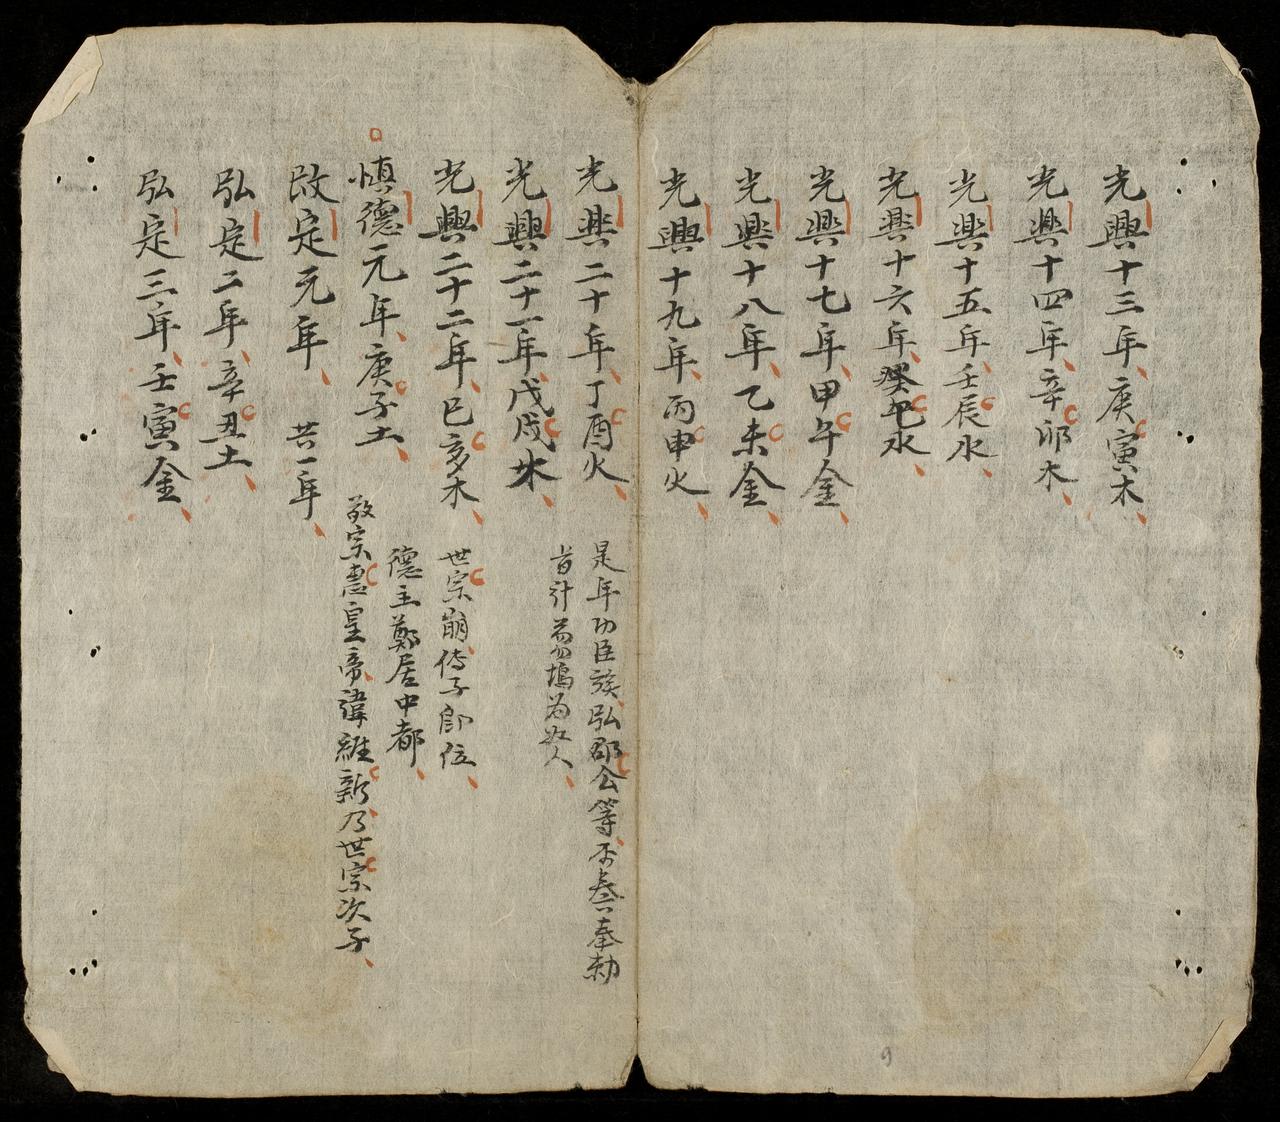 光興十三年庚寅木
光興十四年辛卯木
光興十五年壬辰水
光興十六年癸巳水
光興十七年甲午金
光興十八年乙未金
光興十九年丙申火
光興二十年丁酉火
是年功臣族弘郡公等不叅奉勅
旨計
為奴人
光興二十一年戊戌木
光興二十二年己亥木
世宗崩傳子即位
慎德元年庚子土
德主鄭居中都
敬宗惠皇帝諱維新乃世宗次子
改定元年 共一年
弘定二年辛丑土
弘定三年壬寅金
9